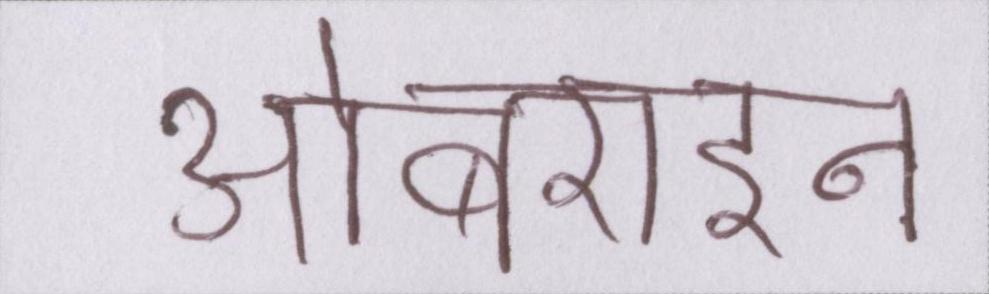 ओबराइन